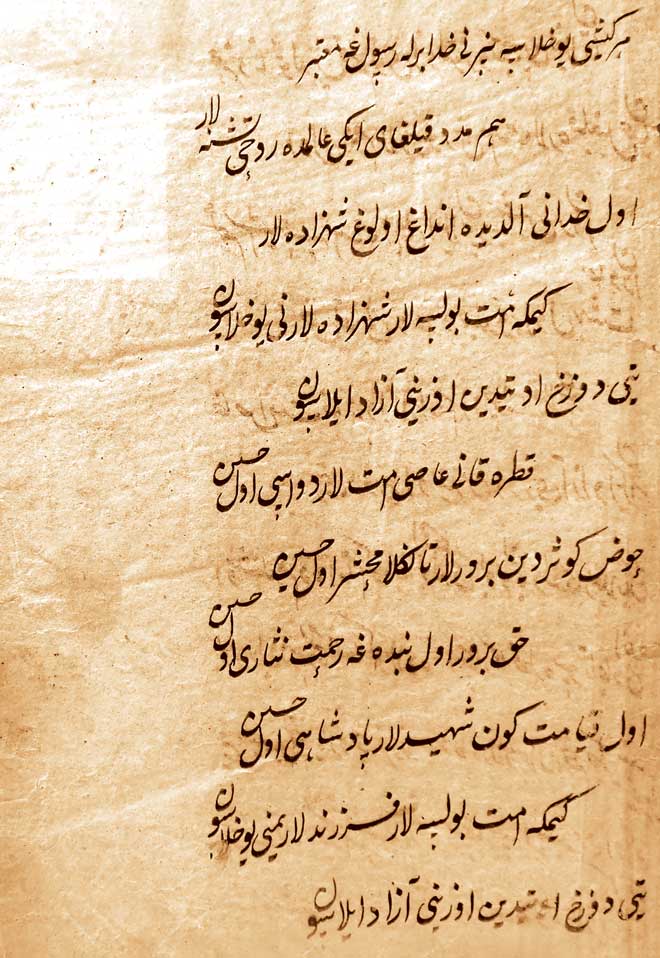 هر کیشی یوخلاسه منبرنی خدا برله رسول غه معتبر
هم مدد قیلغای ایکی عالمده روحی تشنه لار
اول خدانی آلدیده انداغ اولوغ شهزاده لار
کیمکه امت بولسه لار شهزاده لارنی یوخلاسون
یتی دوزخ اوتیدین اوزینی آزاد ایلاسون
قطره قانی عاصی امت لار دواسی اول حسین
حوض کوثردین برورلار تا محشر اول حسین
حق برور اول بنده غه رحمت نثاری اول حسین
اول قیامت کون شهیدلار پادشاهی اول حسین
کیمکه امت بولسه لار فرزندلاریمنی یوخلاسون
یتی دوزخ اوتیدین اوزینی آزاد ایلاسون